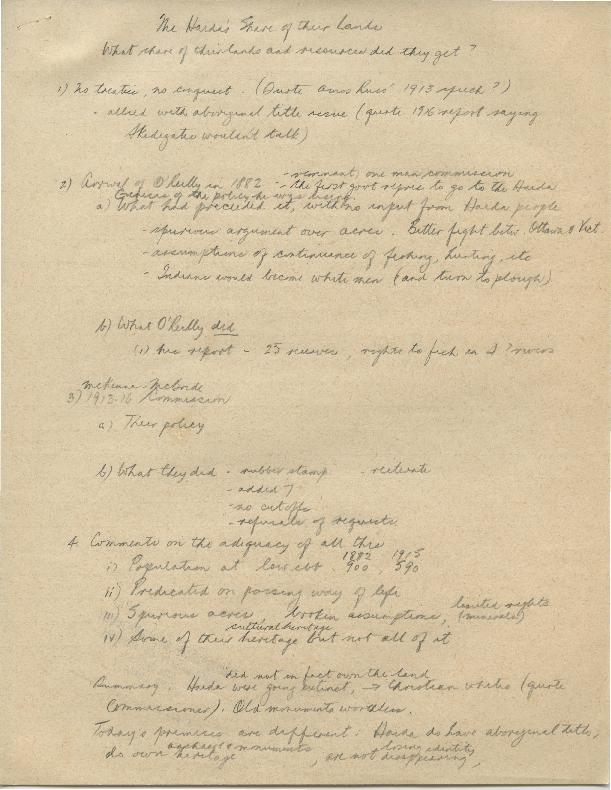 The Haida's Share of their Lands
What share of their lands and resources did they get?
1) No treaties, no conquest. (Quote Amos Russ' 1913 speech?)
- allied with aboriginal title issue (quote 1916 report saying
Skidegate wouldn't talk)
- remnant, one man commission
2) Arrival of O'Reilly in 1882 - the first govt repres to go to the Haida
Genesis of the policy he was using.
a) What had preceded it, with no input from Haida people
- spurious argument over acres. Bitter fight betw. Ottawa & Vict.
- assumptions of continuance of fishing, hunting, etc
- Indians would become white men (and turn to plough)
b) What O'Reilly did
(i) his report - 25 reserves, rights to fish in 4? rivers
McKenna-McBride
3) 1913-16 Commission
a) Their policy
b) What they did - rubber stamp - reiterate
- added 7
- no cutoffs
- refusals of requests
4. Comments on the adequacy of all this
1882 1915
i) Population at low ebb 900 590
ii) Predicated on passing way of life
limited rights
iii) Spurious acres, broken assumptions, (minerals)
cultural heritage
iv) Some of their heritage but not all of it
did not in fact own the land
Summary. Haida were going extinct, → Christian whites (quote
Commissioner). Old monuments worthless.
Today's premises are different. Haida do have aboriginal title,
archaeol & monuments losing identity
do own heritage, are not disappearing,